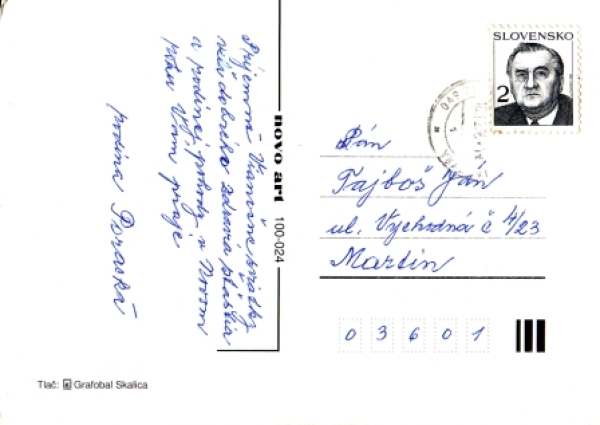 Príjemné Vianočné sviatky
veľa dobrého zdravia šťastia
a rodinnej pohody v Novom
roku Vám praje
rodina Poraská
novo art
100-024
SLOVENSKO
2
Pán
Tajboš Ján
ul. Východná č 4/23
Martin
03601
Tlač: Grafobal Skalica